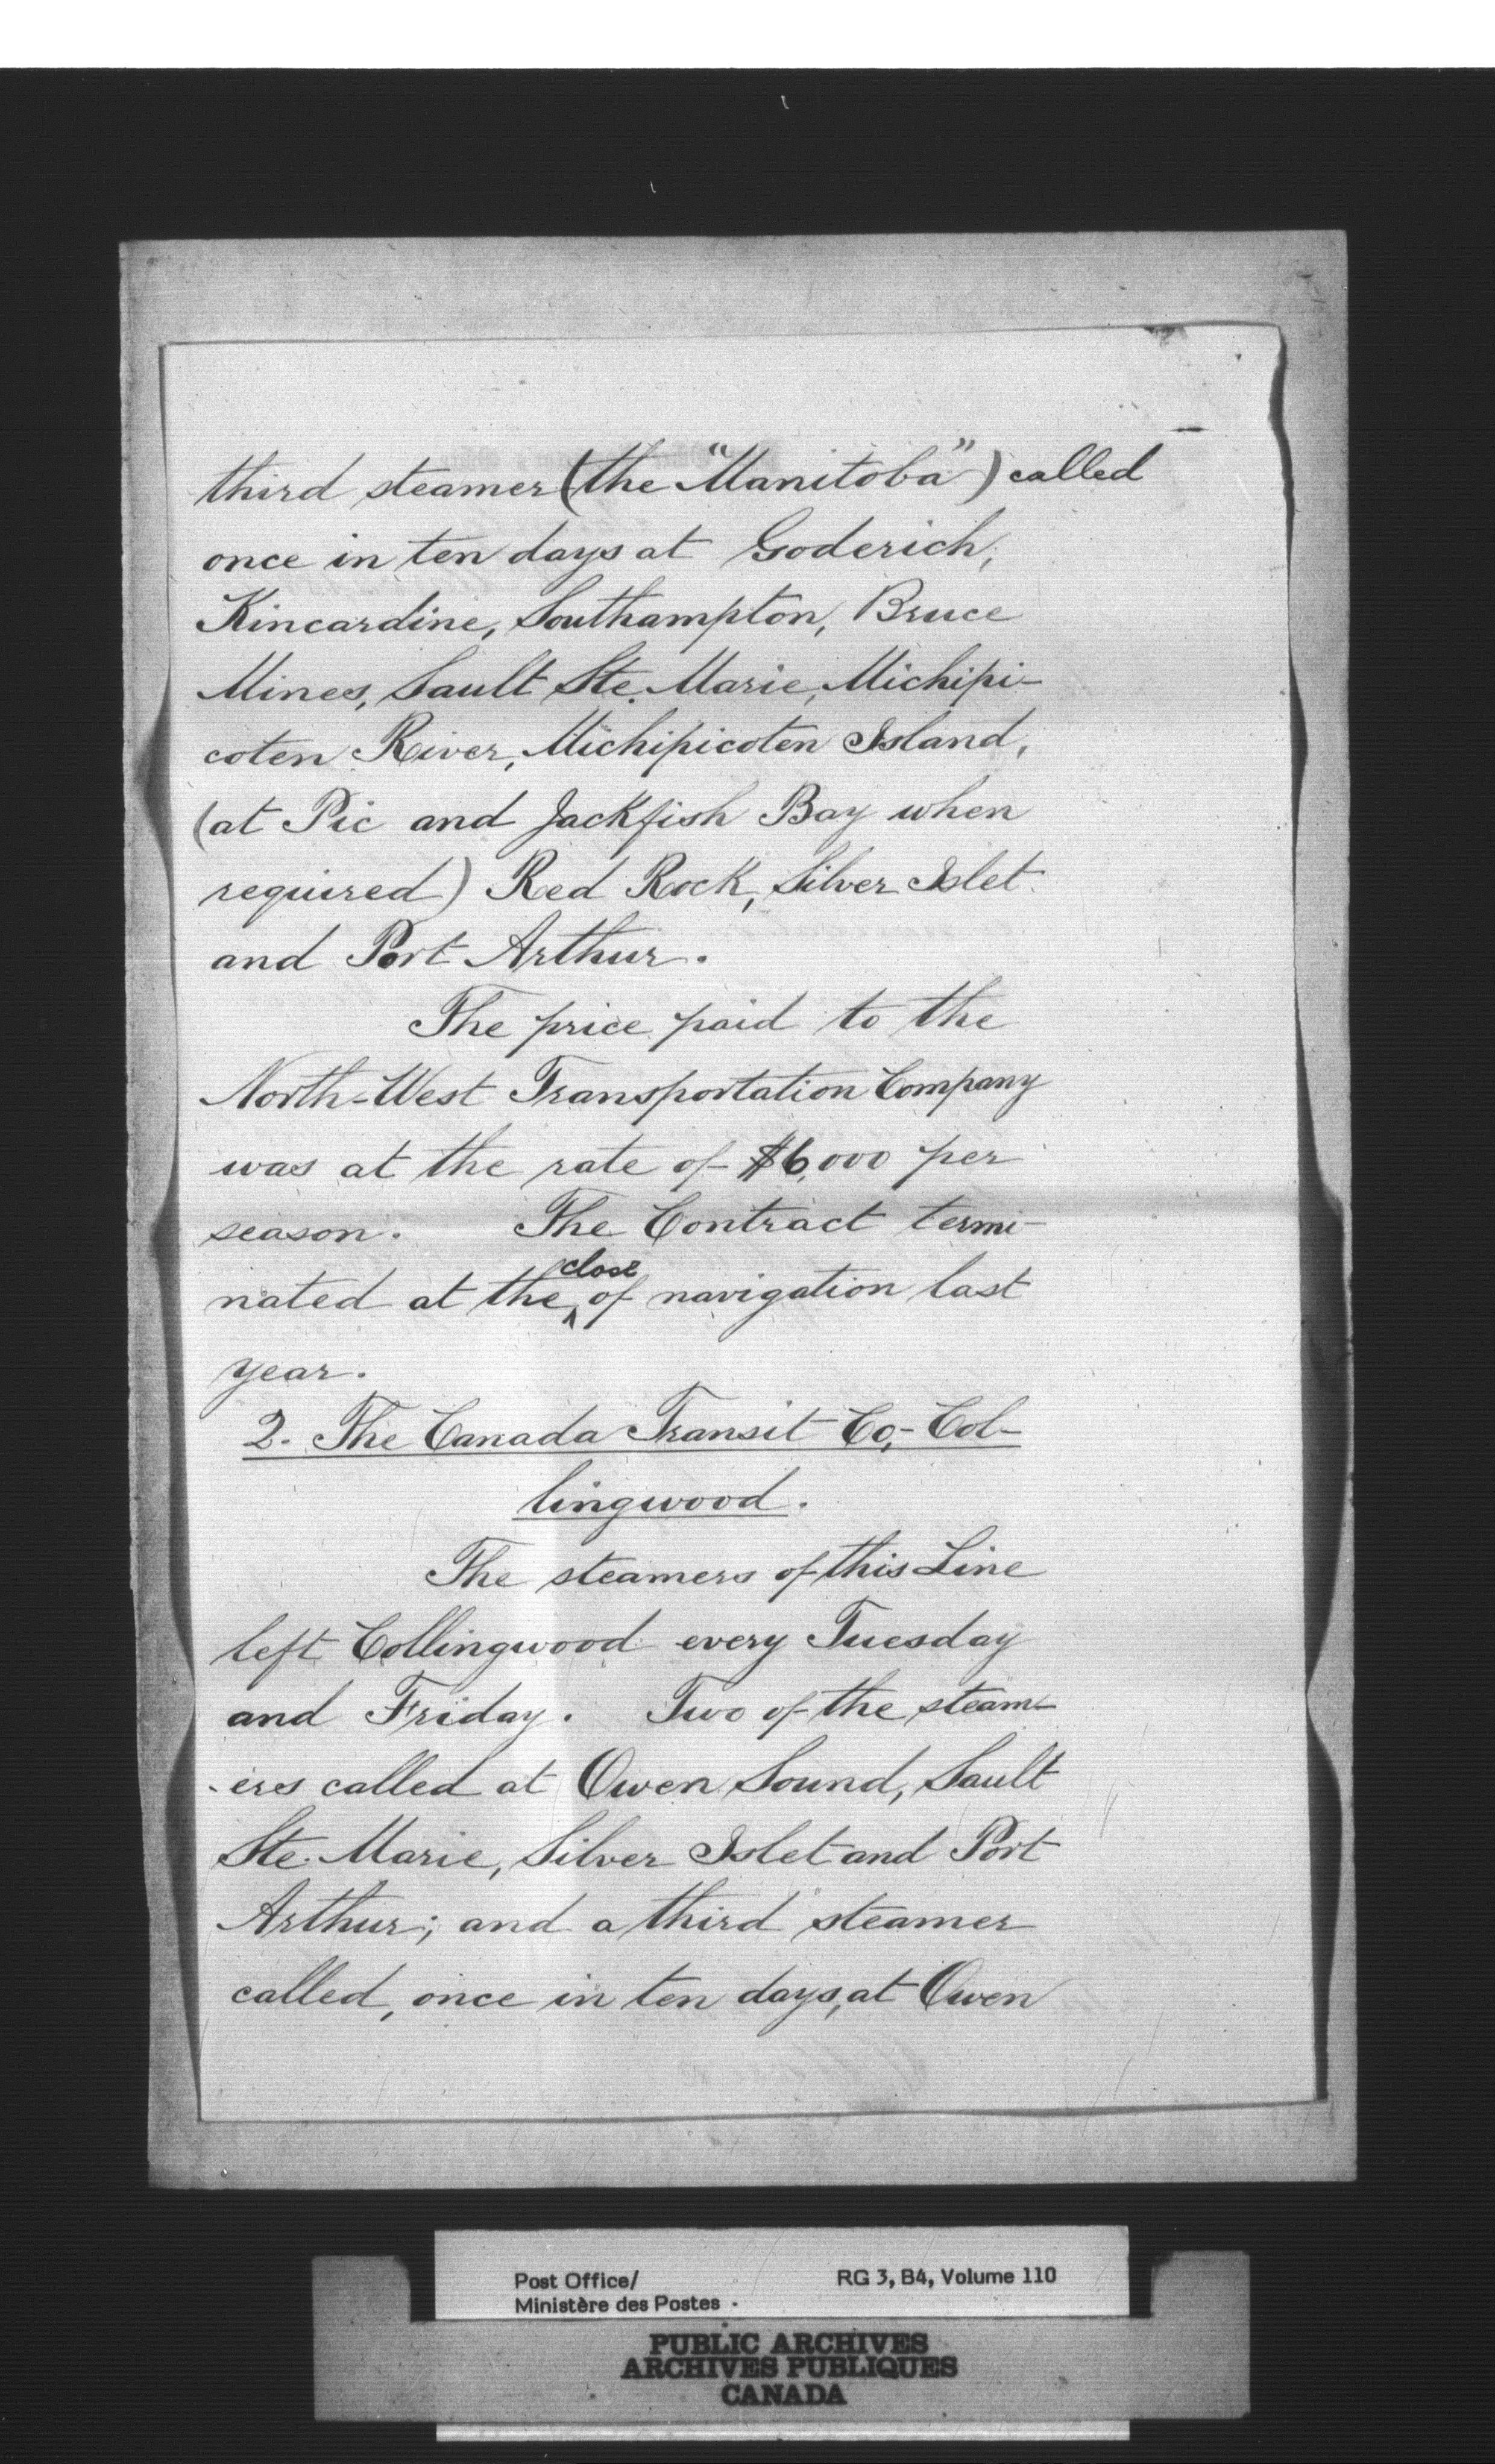 third steamer (the "Manitoba") called
once in ten days at Goderich,
Kincardine, Southampton, Bruce
Mines, Sault Ste. Marie, Michipi-
coten River, Michipicoten Island,
(at Pic and Jackfish Bay when
required) Red Rock, Silver Islet
and Port Arthur.
The price paid to the
North-West Transportation Company
was at the rate of $6,000 per
season. The Contract termi-
close
nated at the ^ of navigation last
year.
2. The Canada Transit Co,- Col-
lingwood.
The steamers of this Line
left Collingwood every Tuesday
and Friday. Two of the steam-
-ers called at Owen Sound, Sault
Ste. Marie, Silver Islet and Port
Arthur; and a third steamer
called, once in ten days, at Owen
Post Office/ RG 3, B4, Volume 110
Ministère des Postes
PUBLIC ARCHIVES
ARCHIVES PUBLIQUES
CANADA